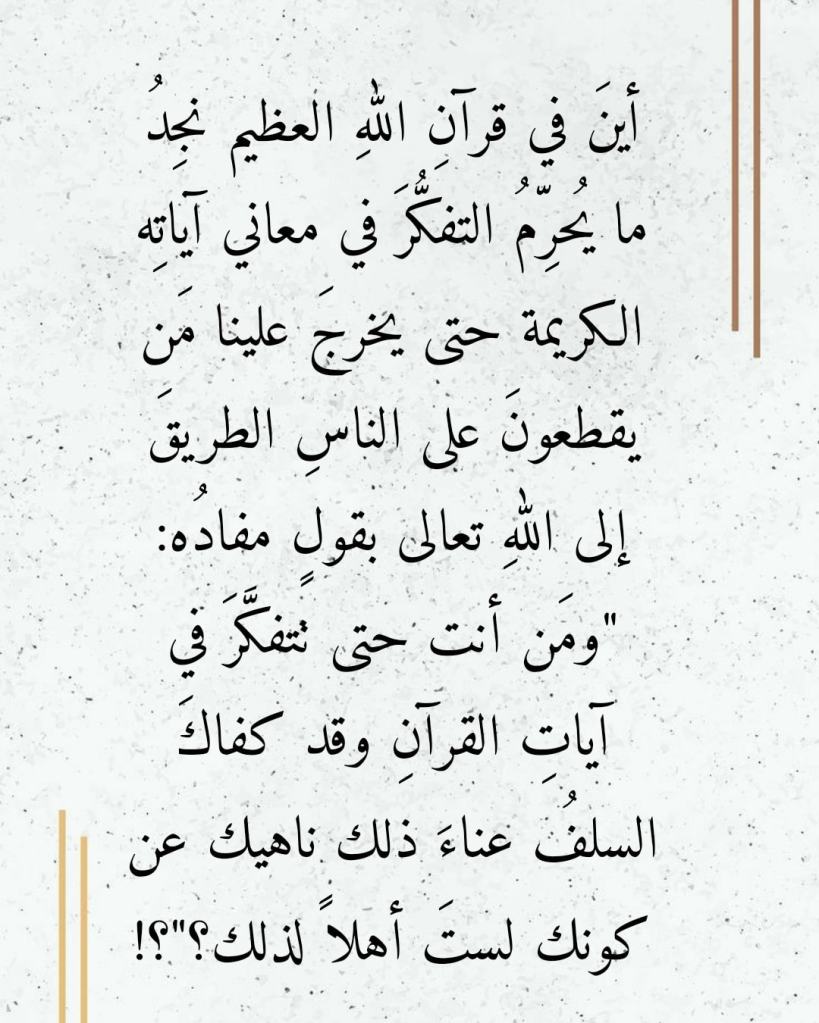 أينَ في قرآنِ اللهِ العظيم نجِدُ
ما يُحرِّمُ التفكُّرَ في معاني آياتِه
الكريمة حتى يخرجَ علينا مَن
يقطعونَ على الناسِ الطريقَ
إلى اللهِ تعالى بقولٍ مفادُه:
"ومَن أنت حتى تتفكَّرَ في
آياتِ القرآنِ وقد كفاكَ
السلفُ عناءَ ذلك ناهيك عن
كونك لستَ أهلاً لذلك؟"؟!